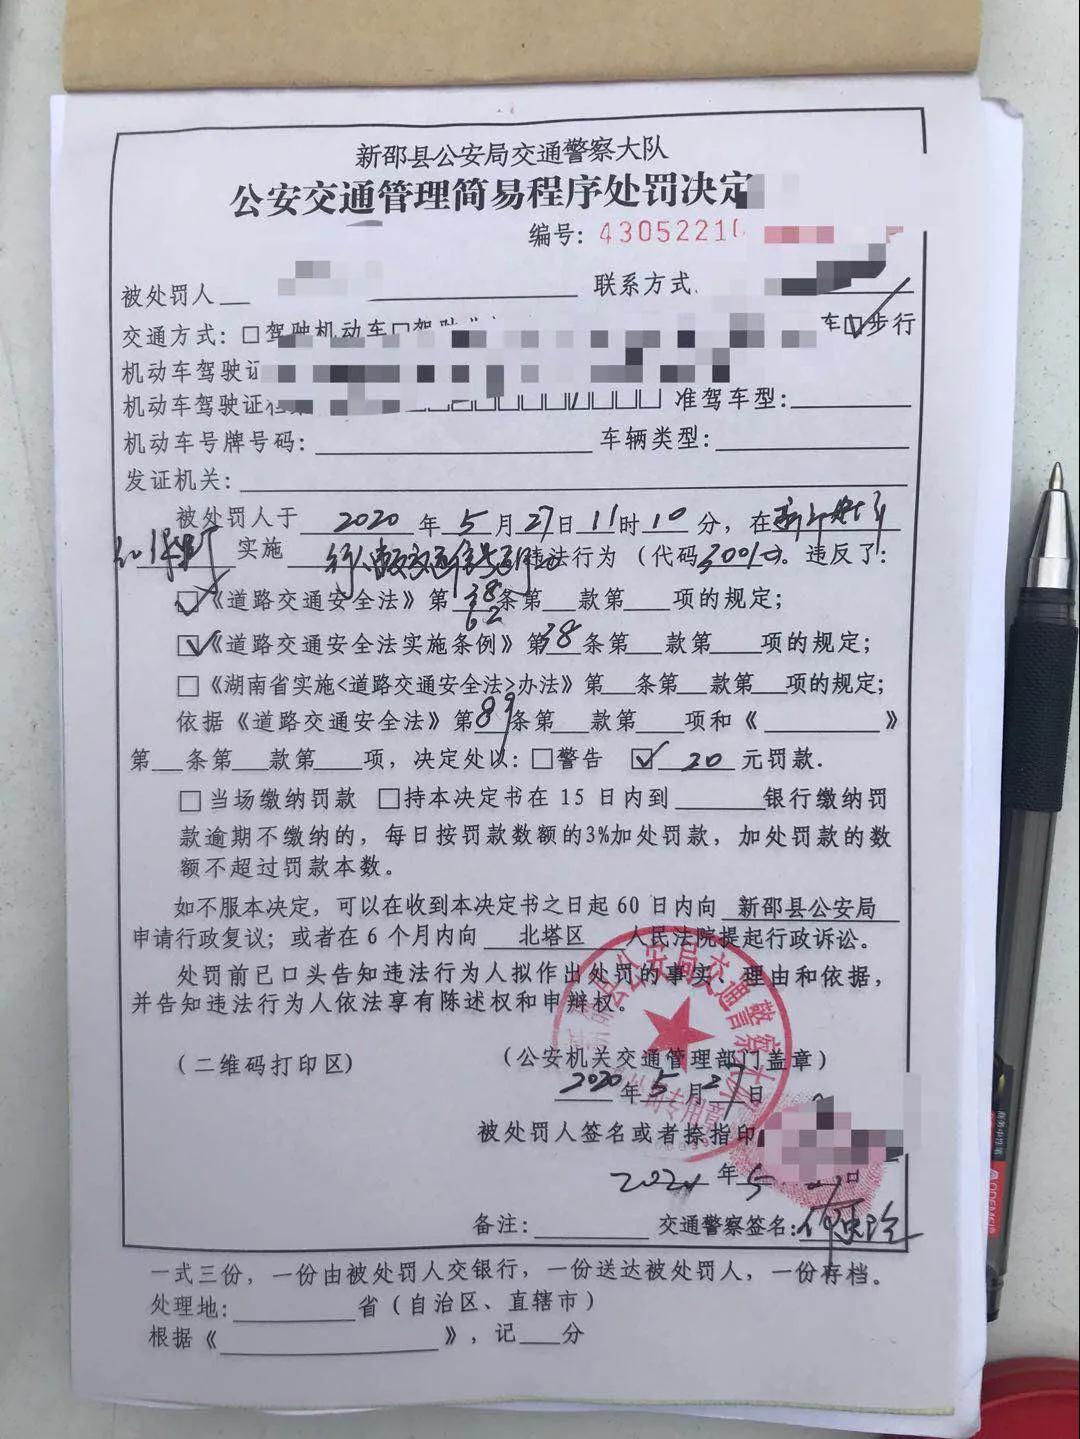 新邵县公安局交通警察大队
公安交通管理简易程序处罚决定
编号: 43052210
被处罚人 联系方式
交通方式: □驾驶机动车□驾驶 车☑步行
机动车驾驶证
机动车驾驶证 准驾车型:
机动车号牌号码: 车辆类型:
发证机关:
被处罚人于 2020 年 5 月 27 日 11 时 10 分, 在
实施 违法行为 (代码3001)。违反了:
☑《道路交通安全法》第 38 62 条第 款第 项的规定;
☑《道路交通安全法实施条例》第38条第 款第 项的规定;
□《湖南省实施<道路交通安全法>办法》第 条第 款第 项的规定;
依据《道路交通安全法》第89条第 款第 项和《 》
第 条第 款第 项, 决定处以: □警告 ☑ 20 元罚款.
□当场缴纳罚款 □持本决定书在 15 日内到 银行缴纳罚
款逾期不缴纳的, 每日按罚款数额的3%加处罚款, 加处罚款的数
额不超过罚款本数。
如不服本决定, 可以在收到本决定书之日起 60 日内向 新邵县公安局
申请行政复议; 或者在 6 个月内向 北塔区 人民法院提起行政诉讼。
处罚前已口头告知违法行为人拟作出处罚的事实、理由和依据,
并告知违法行为人依法享有陈述权和申辩权。
(二维码打印区) (公安机关交通管理部门盖章)
2020 年 5 月 27 日
被处罚人签名或者捺指印
年 5
备注: 交通警察签名:
一式三份, 一份由被处罚人交银行, 一份送达被处罚人, 一份存档。
处理地: 省 (自治区、直辖市)
根据《 》, 记 分